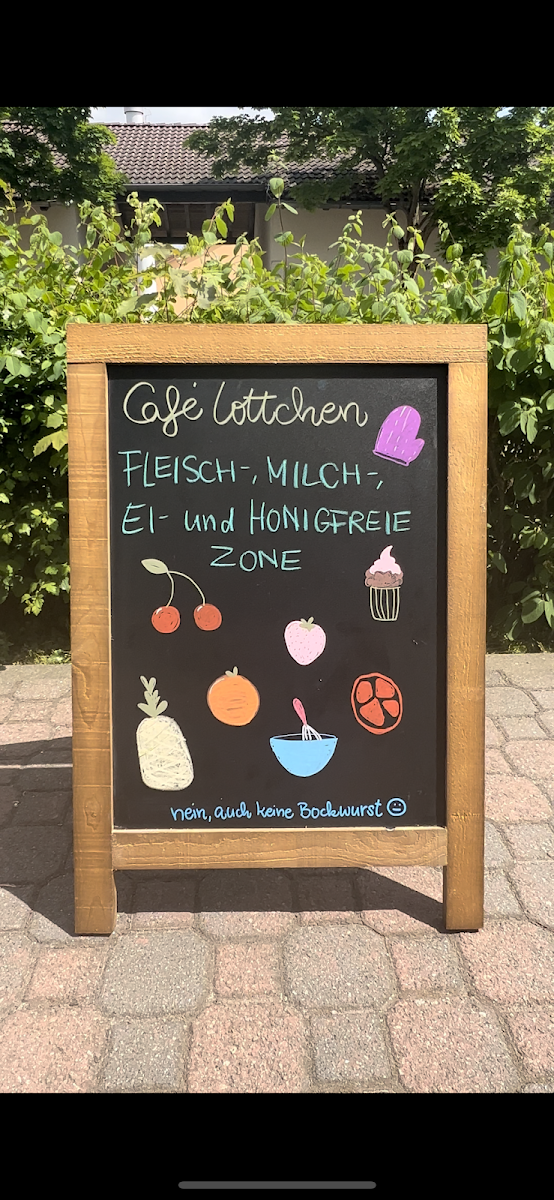 Café Lottchen
FLEISCH-, MILCH-,
EI- und HONIGFREIE
ZONE
nein, auch keine Bockwurst ☺